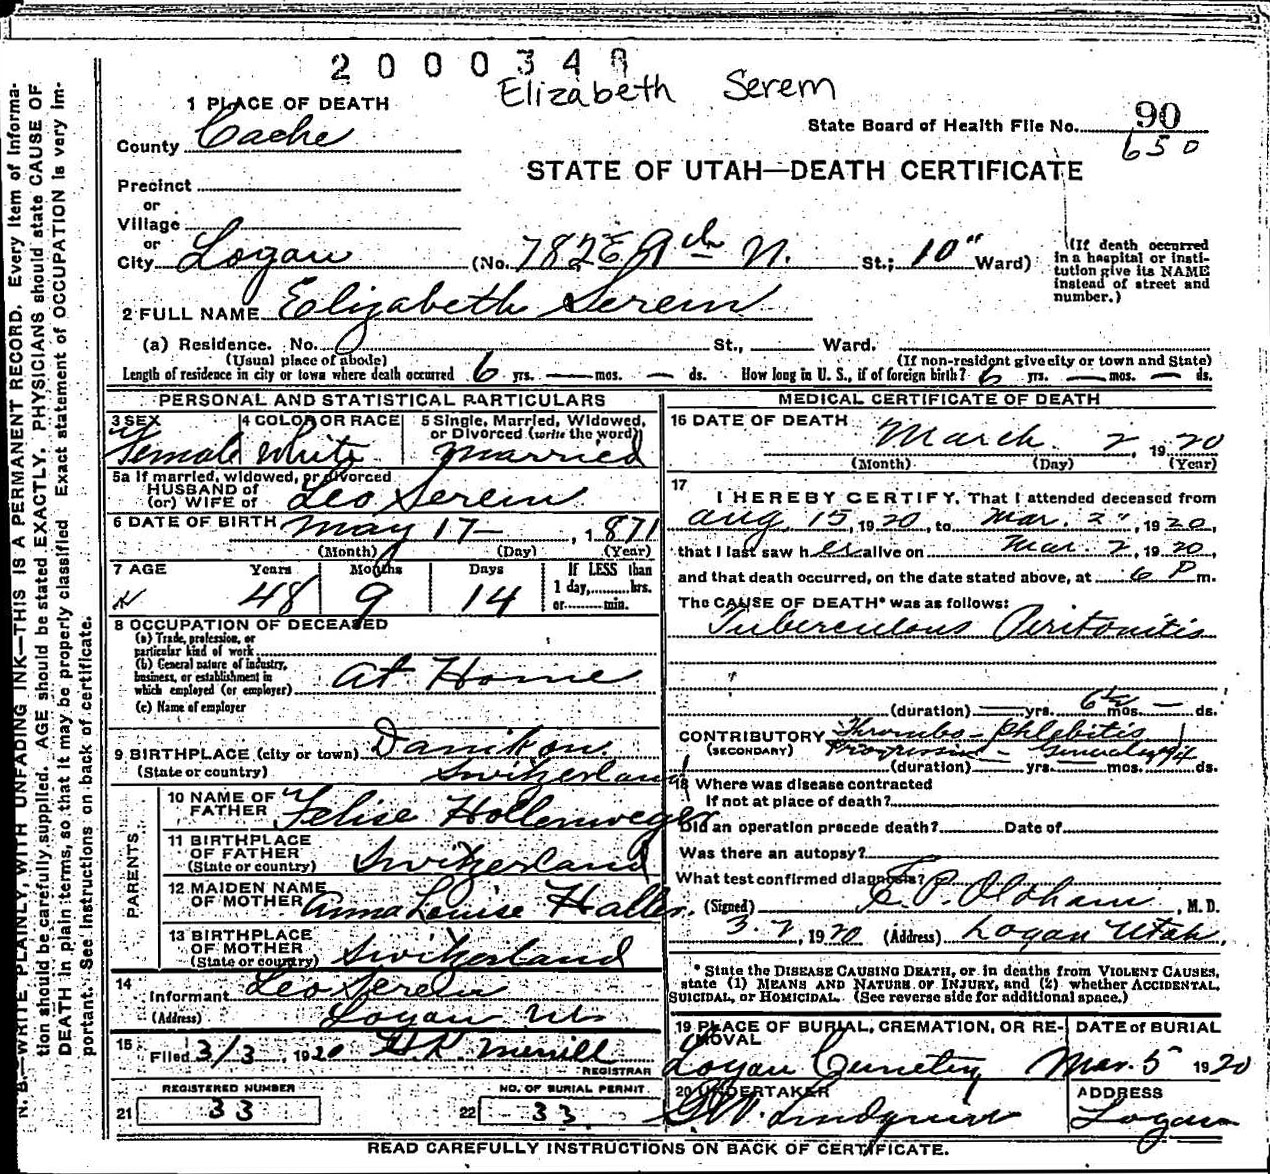 2000348
Elizabeth Serem
1 PLACE OF DEATH
County Cache
State Board of Health File No. 90
650
STATE OF UTAH—DEATH CERTIFICATE
Precinct
or
Village
or
City Logan (No. 782 E 9th N. St.; 10" Ward)
(If death occurred in a hospital or insti-
tution give its NAME
instead of street and
number.)
2 FULL NAME Elizabeth Serem
(a) Residence. No. St., Ward.
(Usual place of abode) (If non-resident give city or town and State)
Length of residence in city or town where death occurred 6 yrs. — mos. — ds. How long in U. S., if of foreign birth? 6 yrs. — mos. — ds.
PERSONAL AND STATISTICAL PARTICULARS
3 SEX Female
4 COLOR OR RACE White
5 Single, Married, Widowed,
or Divorced (write the word)
Married
5a If married, widowed, or divorced
HUSBAND of
(or) WIFE of Leo Serem
6 DATE OF BIRTH May 17 — , 1871
(Month) (Day) (Year)
7 AGE Years Months Days If LESS than
48 9 14 1 day, hrs.
or min.
8 OCCUPATION OF DECEASED
(a) Trade, profession, or
particular kind of work
(b) General nature of industry,
business, or establishment in
which employed (or employer) At Home
(c) Name of employer
9 BIRTHPLACE (city or town) Danikon
(State or country) Switzerland
PARENTS
10 NAME OF
FATHER Felise Hollenweger
11 BIRTHPLACE
OF FATHER
(State or country) Switzerland
12 MAIDEN NAME
OF MOTHER Anna Louise Haller
13 BIRTHPLACE
OF MOTHER
(State or country) Switzerland
14
Informant Leo Serem
(Address) Logan Ut
15
Filed 3/3, 1920 Merrill
REGISTRAR
REGISTERED NUMBER NO. OF BURIAL PERMIT
21 33 22 33
MEDICAL CERTIFICATE OF DEATH
16 DATE OF DEATH
March 2, 1920
(Month) (Day) (Year)
17
I HEREBY CERTIFY, That I attended deceased from
Aug 15, 1920, to Mar. 2", 1920,
that I last saw her alive on Mar. 2, 1920,
and that death occurred, on the date stated above, at 6 P m.
The CAUSE OF DEATH* was as follows:
Tuberculous Peritonitis
(duration) — yrs. 6½ mos. — ds.
CONTRIBUTORY Thrombo-Phlebitis
(SECONDARY) Progressive —
(duration) yrs. mos. 14 ds.
18 Where was disease contracted
If not at place of death?
Did an operation precede death? Date of
Was there an autopsy?
What test confirmed diagnosis?
(Signed) E. P. Oldham, M. D.
3.2, 1920 (Address) Logan Utah.
* State the DISEASE CAUSING DEATH, or in deaths from VIOLENT CAUSES,
state (1) MEANS AND NATURE OF INJURY, and (2) whether ACCIDENTAL,
SUICIDAL, or HOMICIDAL. (See reverse side for additional space.)
19 PLACE OF BURIAL, CREMATION, OR RE-
MOVAL
Logan Cemetery
DATE of BURIAL
Mar. 5 1920
20 UNDERTAKER
G.W. Lindquist
ADDRESS
Logan
READ CAREFULLY INSTRUCTIONS ON BACK OF CERTIFICATE.
N. B.—WRITE PLAINLY, WITH UNFADING INK—THIS IS A PERMANENT RECORD. Every item of informa-
tion should be carefully supplied. AGE should be stated EXACTLY. PHYSICIANS should state CAUSE OF
DEATH in plain terms, so that it may be properly classified. Exact statement of OCCUPATION is very im-
portant. See instructions on back of certificate.